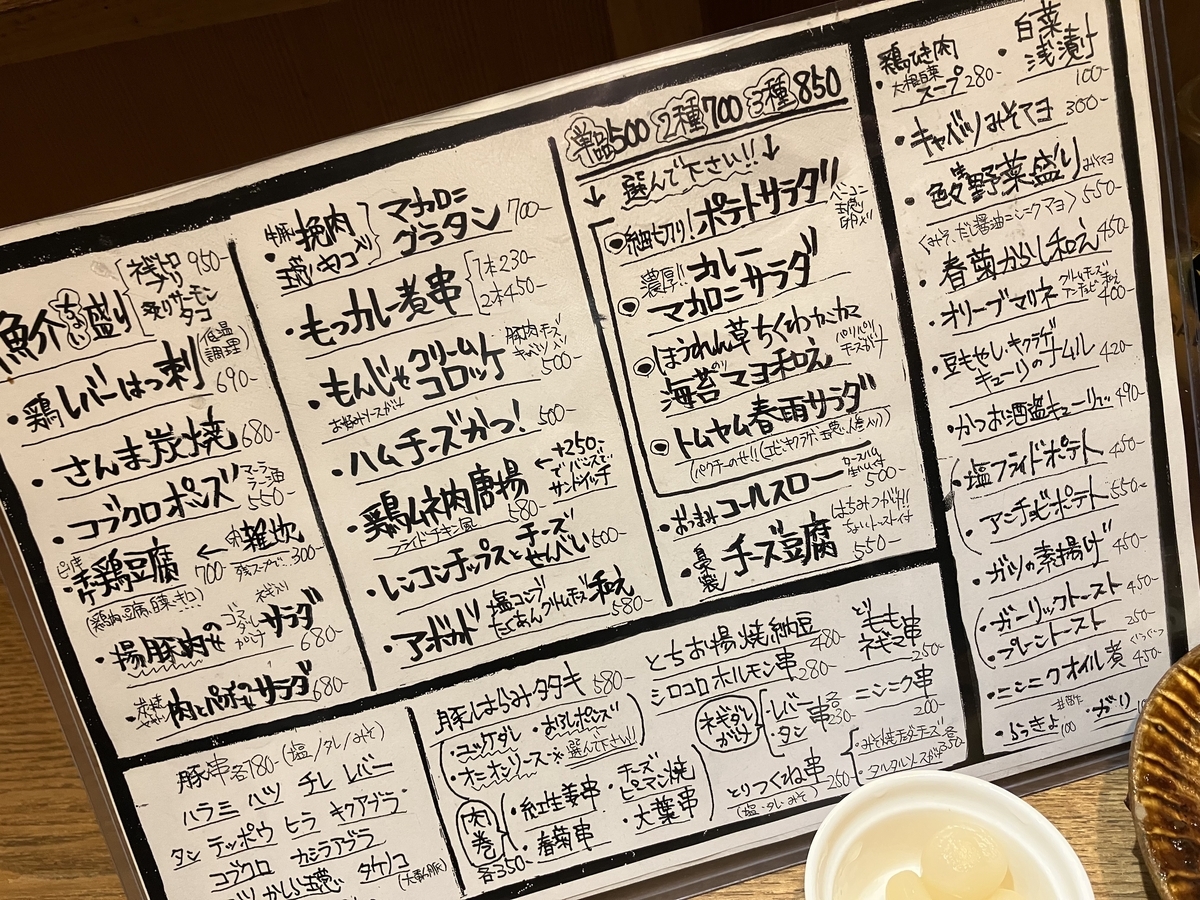 魚介ちょい盛り
ネギトロ
ブリ
炙りサーモン
タコ
950-
・鶏レバーはつ刺
(低温調理)
690-
・さんま炭焼 680-
・コブクロポンズ
マーラーラー油
550-
ピリ辛
鶏豆腐 700-
←〆雑炊
残スープで… 300-
・揚豚肉のせ
サラダ
680-
・肉とパクチーサラダ 680-
挽肉
マカロニ
グラタン 700-
・もつカレー煮串
1本230-
2本450-
・もんじゃクリーム
コロッケ
豚肉チーズ
キャベツ入り
500-
お好みソースがけ
・ハムチーズかつ! 500-
・鶏ムネ肉唐揚 580-
フライドチキン風
←+250-
でバンズで
サンドイッチ
・レンコンチップスとチーズ
せんべい 500-
・アボカド
塩コンブ
たくあん
クリームチーズ
和え
580-
単品500 2種700 3種850
↓選んで下さい!!↓
細切り!ポテトサラダ
ベーコン
濃厚!!カレー
マカロニサラダ
ほうれん草ちくわカニカマ
海苔のマヨ和え
パリパリ
チーズがけ
トムヤム春雨サラダ
(パクチーのせ!!(エビ・キクラゲ・玉葱・人参入))
・おつまみコールスロー
ロースハム
500-
チーズ豆腐 550-
はちみつがけ!!
ちょいトースト付
鶏ひき肉
・大根白菜
スープ 280-
・白菜
浅漬け
100-
・キャベツみそマヨ 300-
野菜盛り
550-
・春菊からし和え 450-
・オリーブマリネ
クリームチーズ
アンチョビ和え
400-
・豆もやし・キクラゲ
キューリのナムル 420-
・かつお酒盗キューリで… 490-
・塩フライドポテト 450-
・アンチョビポテト 550-
・ガツの素揚げ 450-
・ガーリックトースト 450-
・プレーントースト 250-
・ニンニクオイル煮
ぐつぐつ
450-
・らっきょ
甘酢
100
・ガリ
豚串各180-(塩/タレ/みそ)
ハラミ ハツ チレ レバー
タン テッポウ ヒラ キクアブラ
コブクロ カシラアブラ
かしら玉葱
豚はらみタタキ 580-
・ユッケダレ・おろしポンズ
・オニオンソース※選んで下さい!!
肉巻
各350-
・紅生姜串
・春菊串
・チーズ
ピーマン焼
・大葉串
とちお揚焼納豆 480-
シロコロホルモン串 280-
とりもも
ネギま串
250-
ネギダレ
がけ
・レバー
・タン
串各
230-
ニンニク串
200-
とりつくね串 250-
(塩・タレ・みそ)
・みそ焼チェダーチーズ
・タルタルソースがけ
各350-